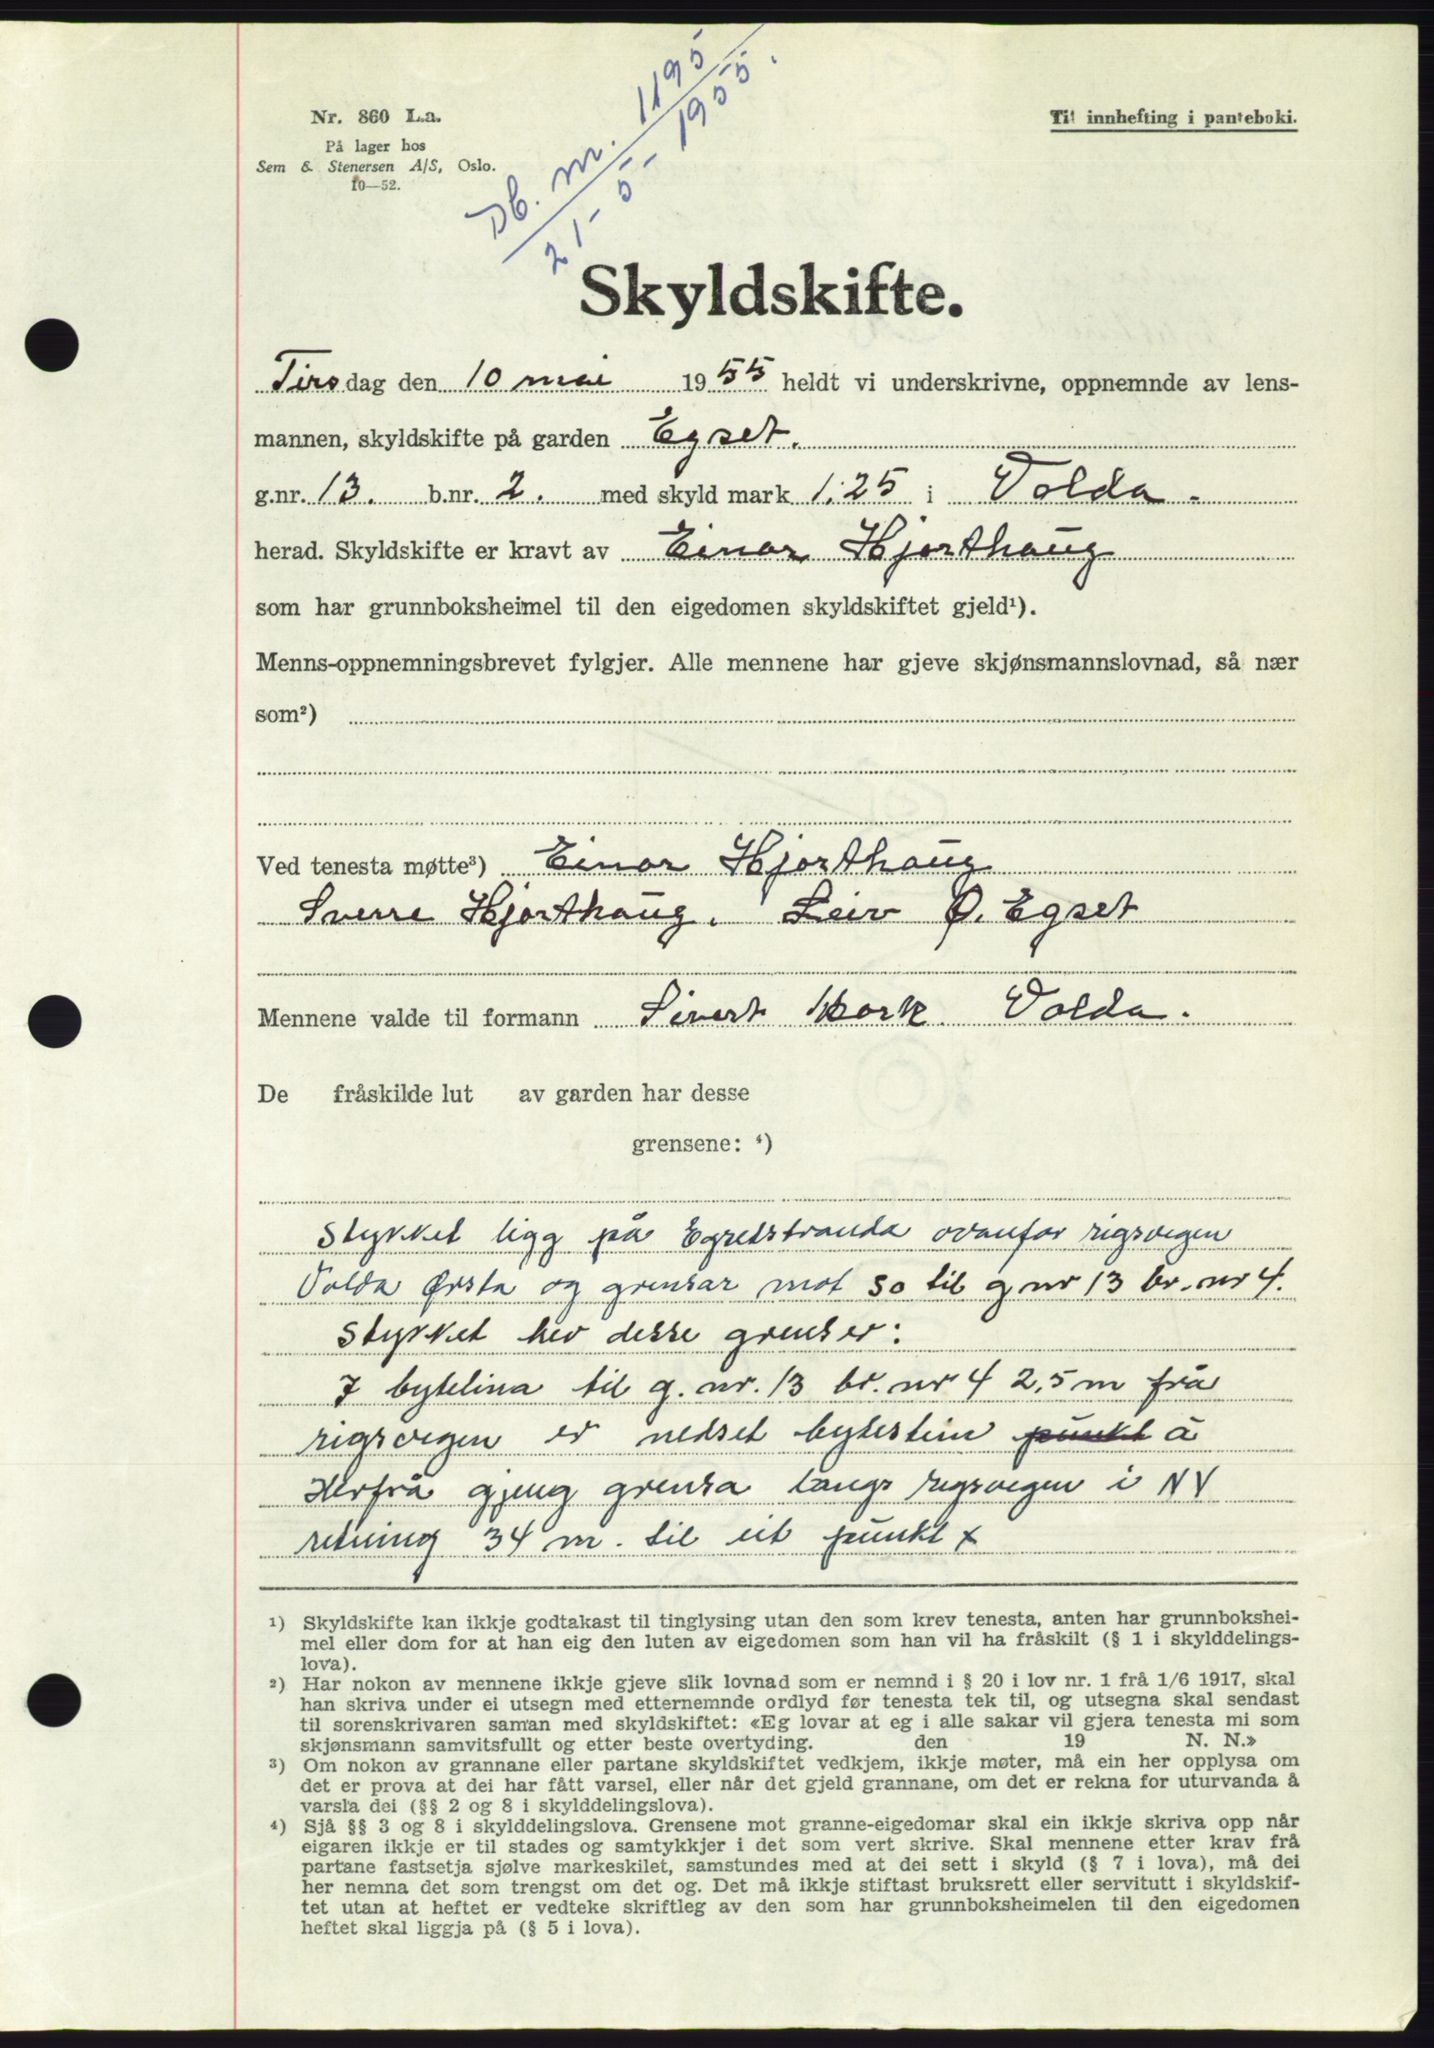 Nr. 860 L.a.
På lager hos
Sem & Stenersen A/S, Oslo.
10—52.
Db. nr. 1195
21-5-1955.
Til innhefting i panteboki.
Skyldskifte.
Tirsdag den 10 mai 1955 heldt vi underskrivne, oppnemnde av lens-
mannen, skyldskifte på garden Egset.
g.nr. 13. b.nr. 2. med skyld mark 1.25 i Volda.
herad. Skyldskifte er kravt av Einar Hjorthaug
som har grunnboksheimel til den eigedomen skyldskiftet gjeld¹).
Menns-oppnemningsbrevet fylgjer. Alle mennene har gjeve skjønsmannslovnad, så nær
som²)
Ved tenesta møtte³) Einar Hjorthaug
Sverre Hjorthaug. Leiv Ø. Egset
Mennene valde til formann Sivert Mork Volda.
De fråskilde lut av garden har desse
grensene: ⁴)
Stykket ligg på Egsetstranda ovanfor rigsvegen
Volda Ørsta og grensar mot so til g nr 13 br. nr 4.
Stykket hev desse grenser:
I bytelina til g. nr. 13 br. nr 4 2,5 m frå
rigsvegen er nedset bytestein punkt a
Herfrå gjeng grensa langs rigsvegen i NV
retning 34 m. til eit punkt x
¹) Skyldskifte kan ikkje godtakast til tinglysing utan den som krev tenesta, anten har grunnbokshei-
mel eller dom for at han eig den luten av eigedomen som han vil ha fråskilt (§ 1 i skylddelings-
lova).
²) Har nokon av mennene ikkje gjeve slik lovnad som er nemnd i § 20 i lov nr. 1 frå 1/6 1917, skal
han skriva under ei utsegn med etternemnde ordlyd før tenesta tek til, og utsegna skal sendast
til sorenskrivaren saman med skyldskiftet: «Eg lovar at eg i alle sakar vil gjera tenesta mi som
skjønsmann samvitsfullt og etter beste overtyding. den 19 N. N.»
³) Om nokon av grannane eller partane skyldskiftet vedkjem, ikkje møter, må ein her opplysa om
det er prova at dei har fått varsel, eller når det gjeld grannane, om det er rekna for uturvanda å
varsla dei (§§ 2 og 8 i skylddelingslova).
⁴) Sjå §§ 3 og 8 i skylddelingslova. Grensene mot granne-eigedomar skal ein ikkje skriva opp når
eigaren ikkje er til stades og samtykkjer i det som vert skrive. Skal mennene etter krav frå
partane fastsetja sjølve markeskilet, samstundes med at dei sett i skyld (§ 7 i lova), må dei
her nemna det som trengst om det og. Det må ikkje stiftast bruksrett eller servitutt i skyldskif-
tet utan at heftet er vedteke skriftleg av den som har grunnboksheimelen til den eigedomen
heftet skal liggja på (§ 5 i lova).